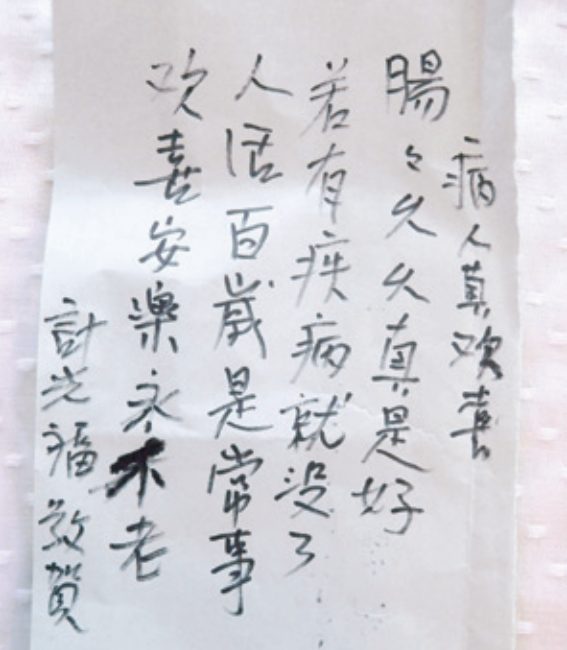 病人真欢喜
腸々久久真是好
若有疾病就没了
人活百歲是常事
欢喜安樂永不老
計光福敬賀